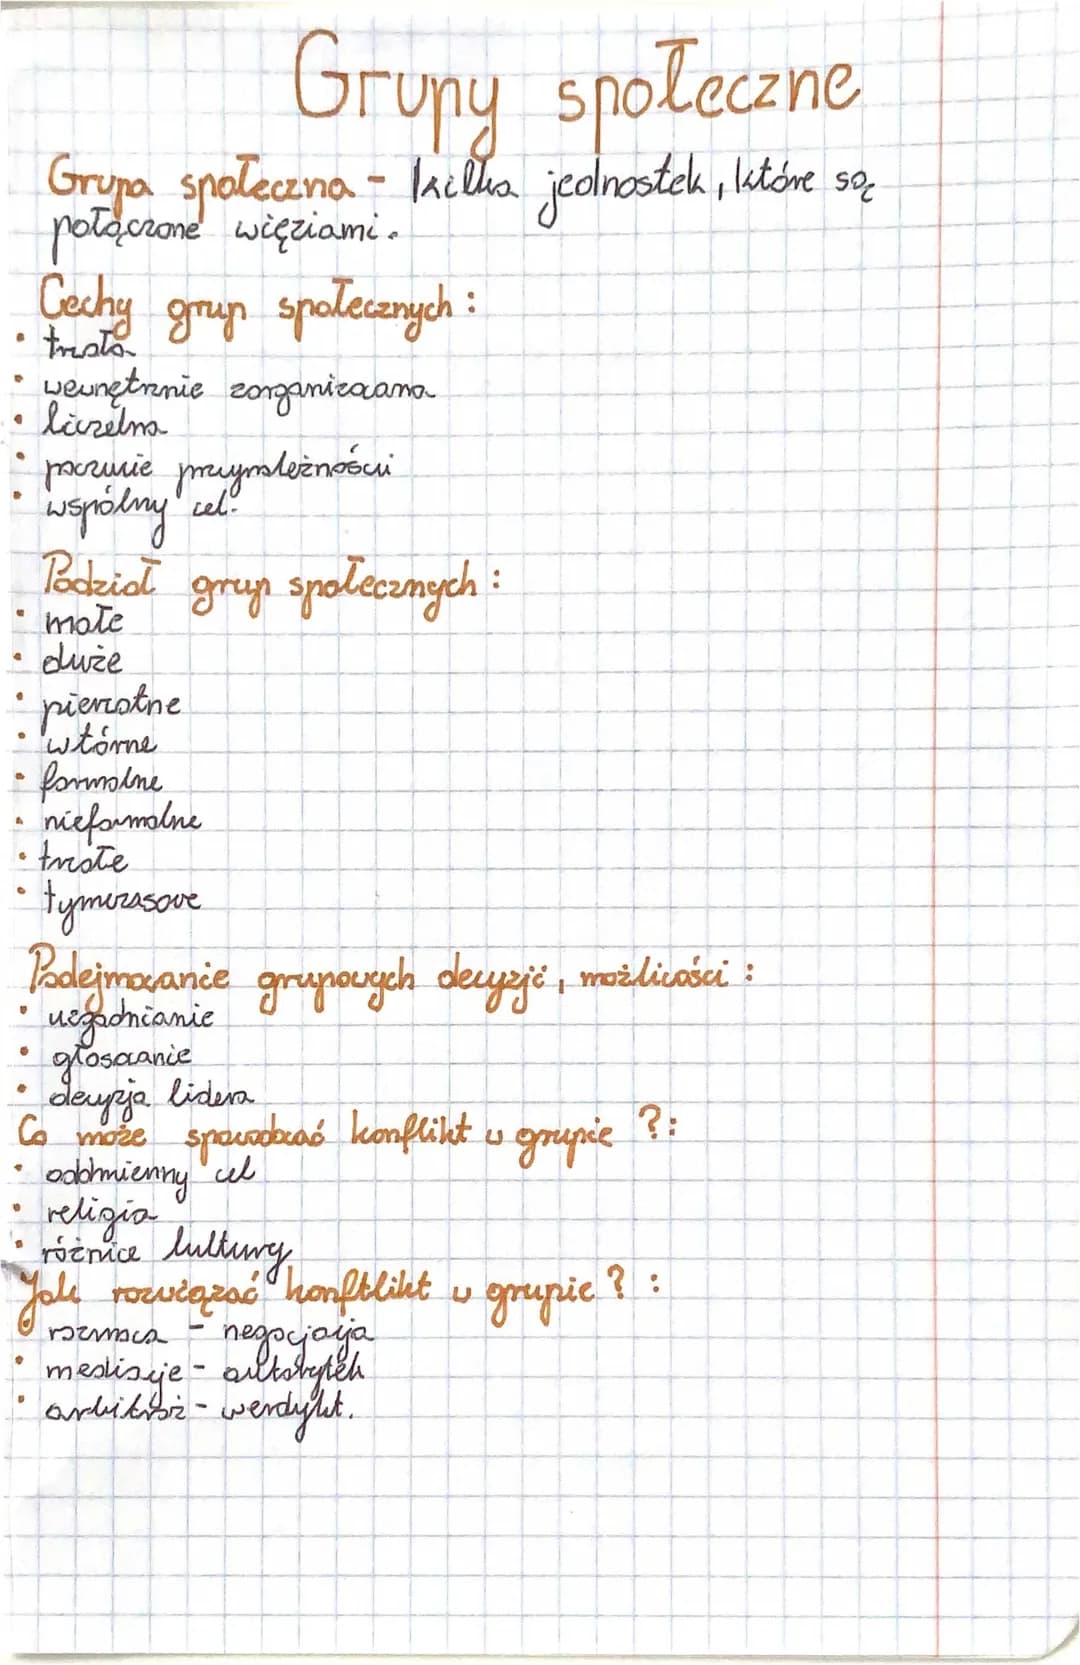 Grupy społeczne
Grupa społeczna - kilka jednostek, które są
połączone więziami.
Cechy grup społecznych:
• trwała
• wewnętrznie zorganizowana
• liczelna
• poczucie przynależności
• wspólny cel.
Podział grup społecznych:
• małe
• duże
• pierwotne
• wtórne
• formalne
• nieformalne
• trwałe
• tymczasowe
Podejmowanie grupowych decyzji, możliwości:
• uzgadnianie
• głosowanie
• decyzja lidera
Co może spowodować konflikt w grupie?:
• odmienny cel
• religia
• różnice kultury
Jak rozwiązać konftlikt w grupie?:
• rozmowa - negocjacja
• mediacje - autorytek
• arbitraż - werdykt.